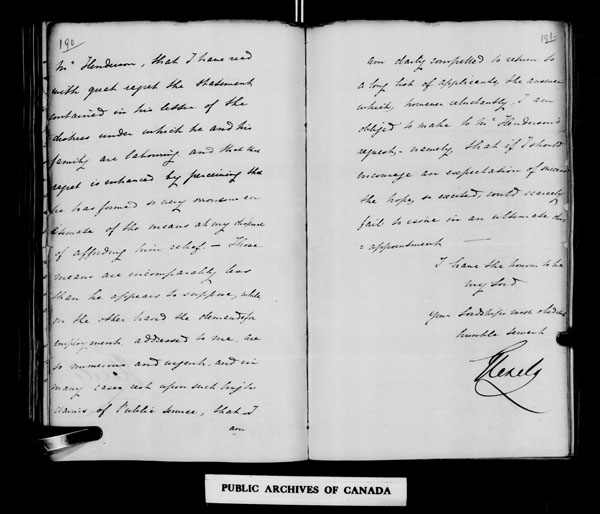 190
Mr Henderson, that I have read
with great regret the statement
contained in his letter of the
distress under which he and his
family are labouring and that this
regret is enhanced by perceiving that
he has formed so very erroneous an
estimate of the means at my disposal
of affording him relief. — Those
means are incomparably less
than he appears to suppose, while
on the other hand the demands for
employment addressed to me, are
so numerous and urgent, and in
many cases rest upon such high
claims of Public Service, that I
am
191
am daily compelled to return to
a long list of applicants the answer
which, however reluctantly, I am
obliged to make to Mr Henderson's
request, - namely, that if I should
encourage an expectation of success
the hope, so excited, could scarcely
fail to issue in an ultimate dis-
=appointment —
I have the honour to be
My Lord
Your Lordships most obedient
humble servant
Glenelg
PUBLIC ARCHIVES OF CANADA